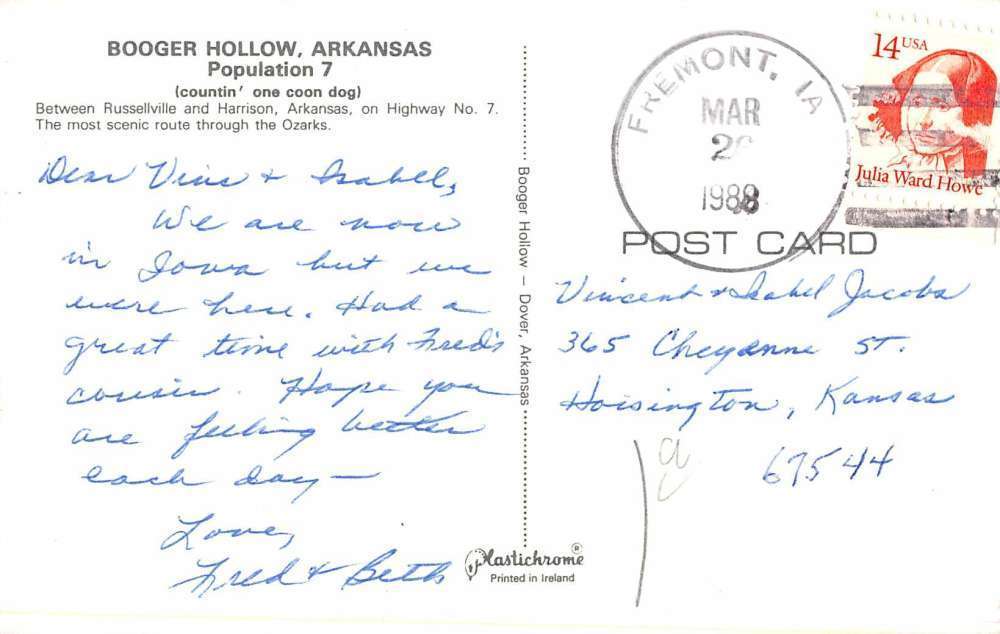 BOOGER HOLLOW, ARKANSAS
Population 7
(countin' one coon dog)
Between Russellville and Harrison, Arkansas, on Highway No. 7.
The most scenic route through the Ozarks.
Dear Vins & Isabel,
We are now
in Iowa but we
were here. Had a
great time with Fred's
cousin. Hope you
are feeling better
each day—
Love,
Fred & Beth
Booger Hollow — Dover, Arkansas
Plastichrome®
Printed in Ireland
FREMONT, IA
MAR
1988
14 USA
Julia Ward Howe
POST CARD
Vincent & Isabel Jacobs
365 Cheyenne St.
Hoisington, Kansas
67544